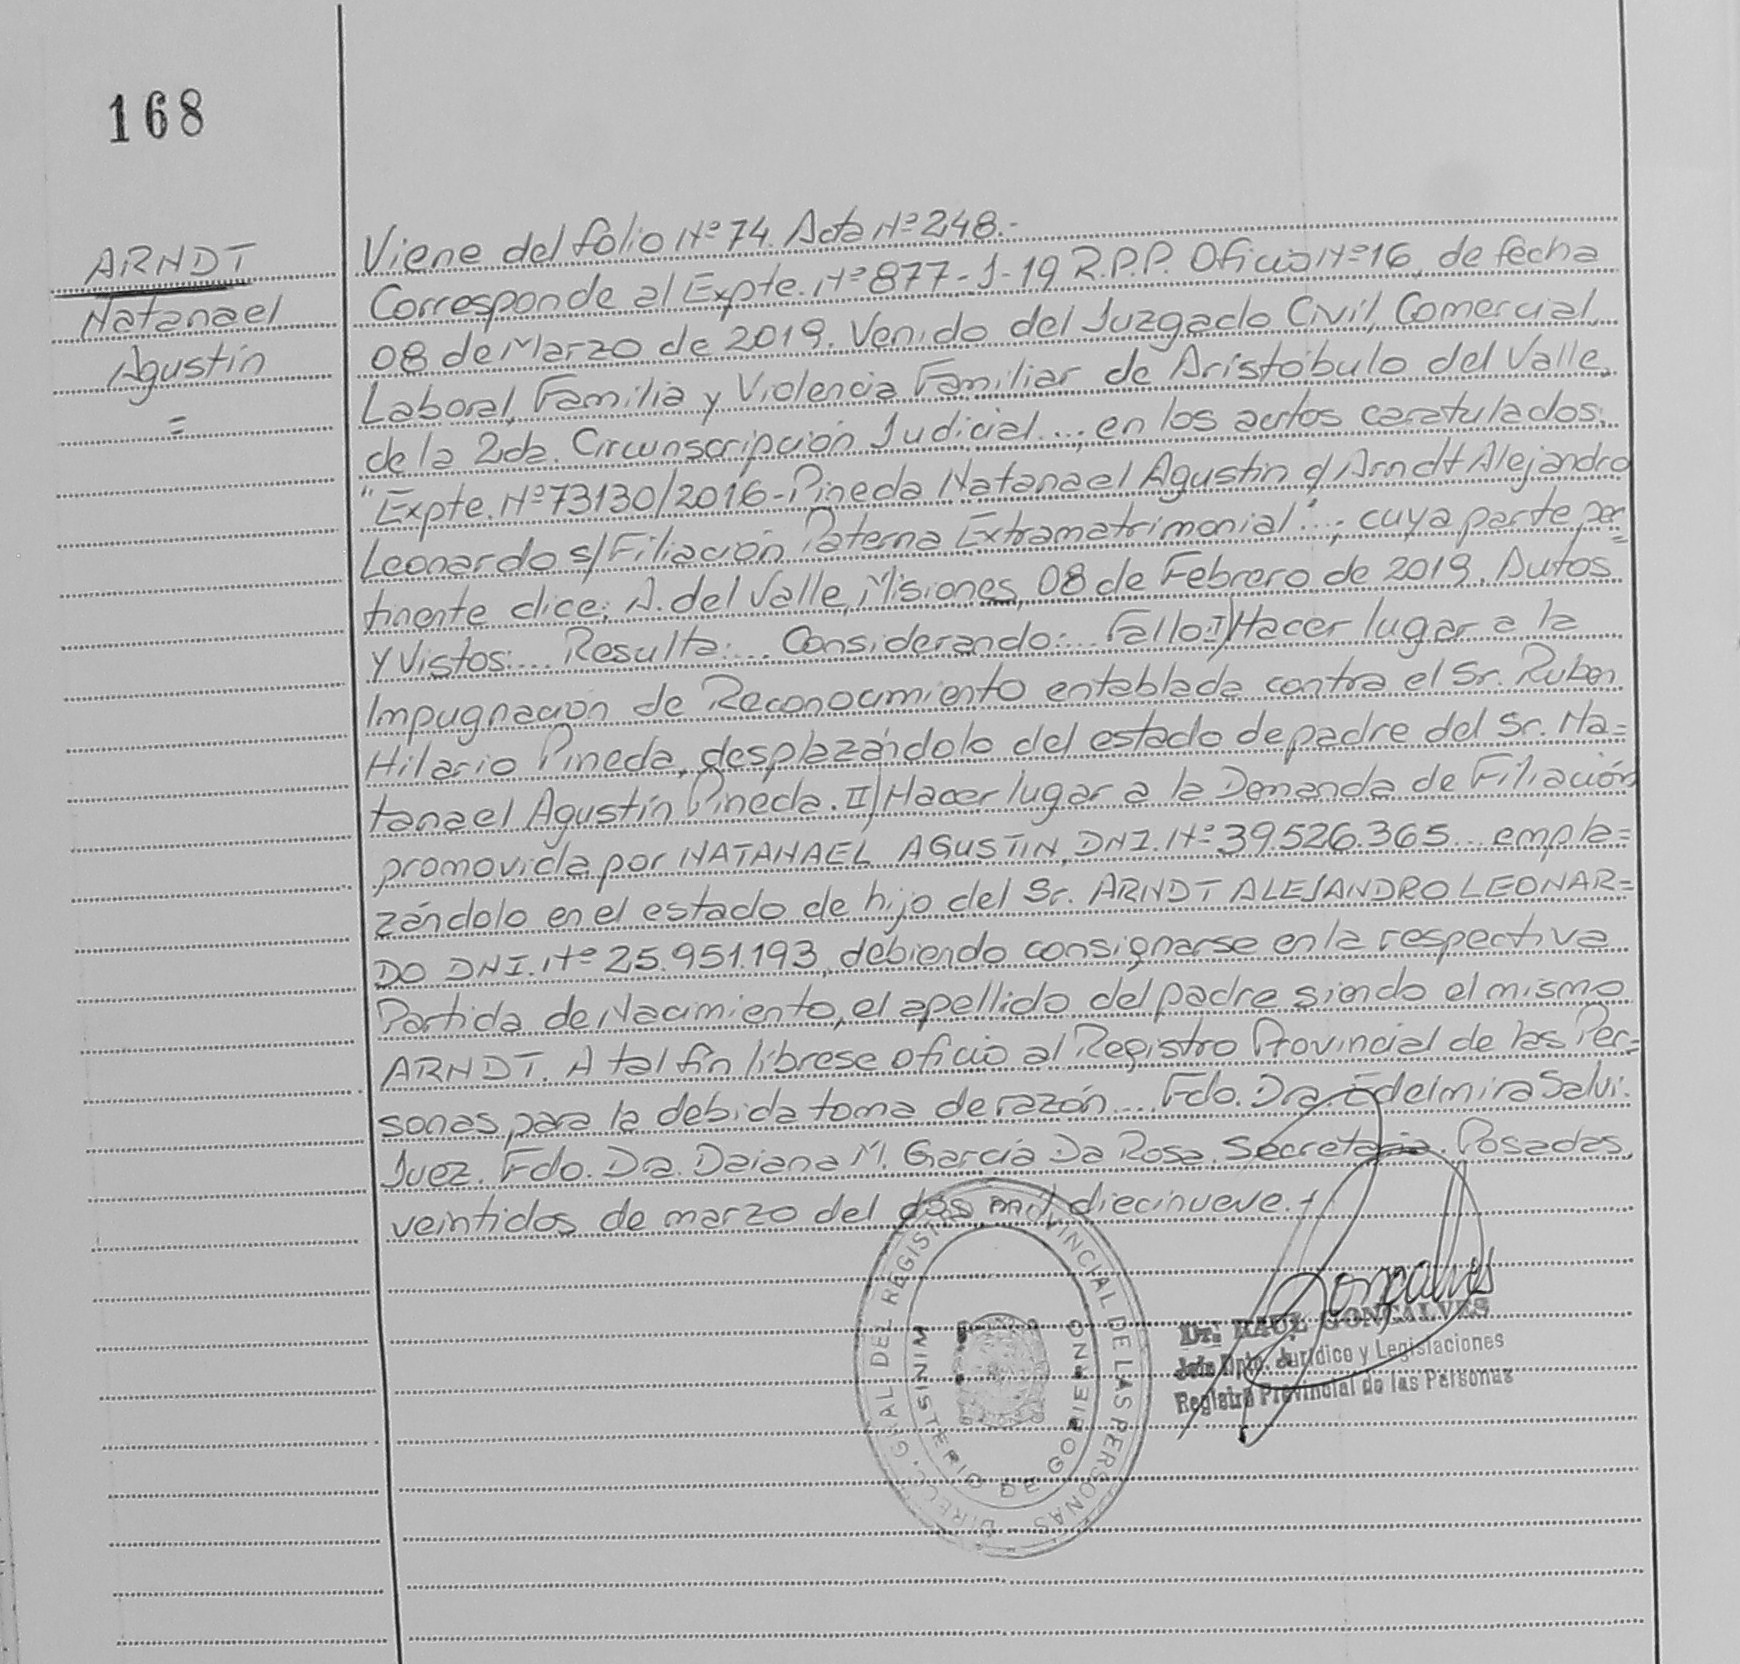 168
ARNDT
Natanael
Agustín
=
Viene del folio Nº 74. Acta Nº 248.-
Corresponde al Expte. Nº 877-J-19 R.P.P. Oficio Nº 16, de fecha
08 de Marzo de 2019. Venido del Juzgado Civil, Comercial,
Laboral, Familia y Violencia Familiar de Aristóbulo del Valle,
de la 2da. Circunscripción Judicial..., en los autos caratulados:
"Expte. Nº 73130/2016-Pineda Natanael Agustin c/ Arndt Alejandro
Leonardo s/ Filiación Paterna Extramatrimonial"...; cuya parte per=
tinente dice: A. del Valle, Misiones, 08 de Febrero de 2019. Autos
y Vistos:... Resulta:... Considerando:... Fallo: I) Hacer lugar a la
Impugnación de Reconocimiento entablada contra el Sr. Ruben
Hilario Pineda, desplazándolo del estado de padre del Sr. Na=
tanael Agustín Pineda. II) Hacer lugar a la Demanda de Filiación
promovida por NATANAEL AGUSTIN, DNI. Nº 39.526.365... empla=
zándolo en el estado de hijo del Sr. ARNDT ALEJANDRO LEONAR=
DO DNI. Nº 25.951.193, debiendo consignarse en la respectiva
Partida de Nacimiento, el apellido del padre siendo el mismo
ARNDT. A tal fin líbrese oficio al Registro Provincial de las Per=
sonas para la debida toma de razón... Fdo. Dra Edelmira Salvi.
Juez. Fdo. Dra. Daiana M. García Da Rosa. Secretaria. Posadas,
veintidos de marzo del dos mil diecinueve.-
DIRECC. GRAL DEL REGISTRO PROVINCIAL DE LAS PERSONAS
MINISTERIO DE GOBIERNO
Gonçalves
Dr. RAUL GONÇALVES
Jefe Dpto. Jurídico y Legislaciones
Registro Provincial de las Personas